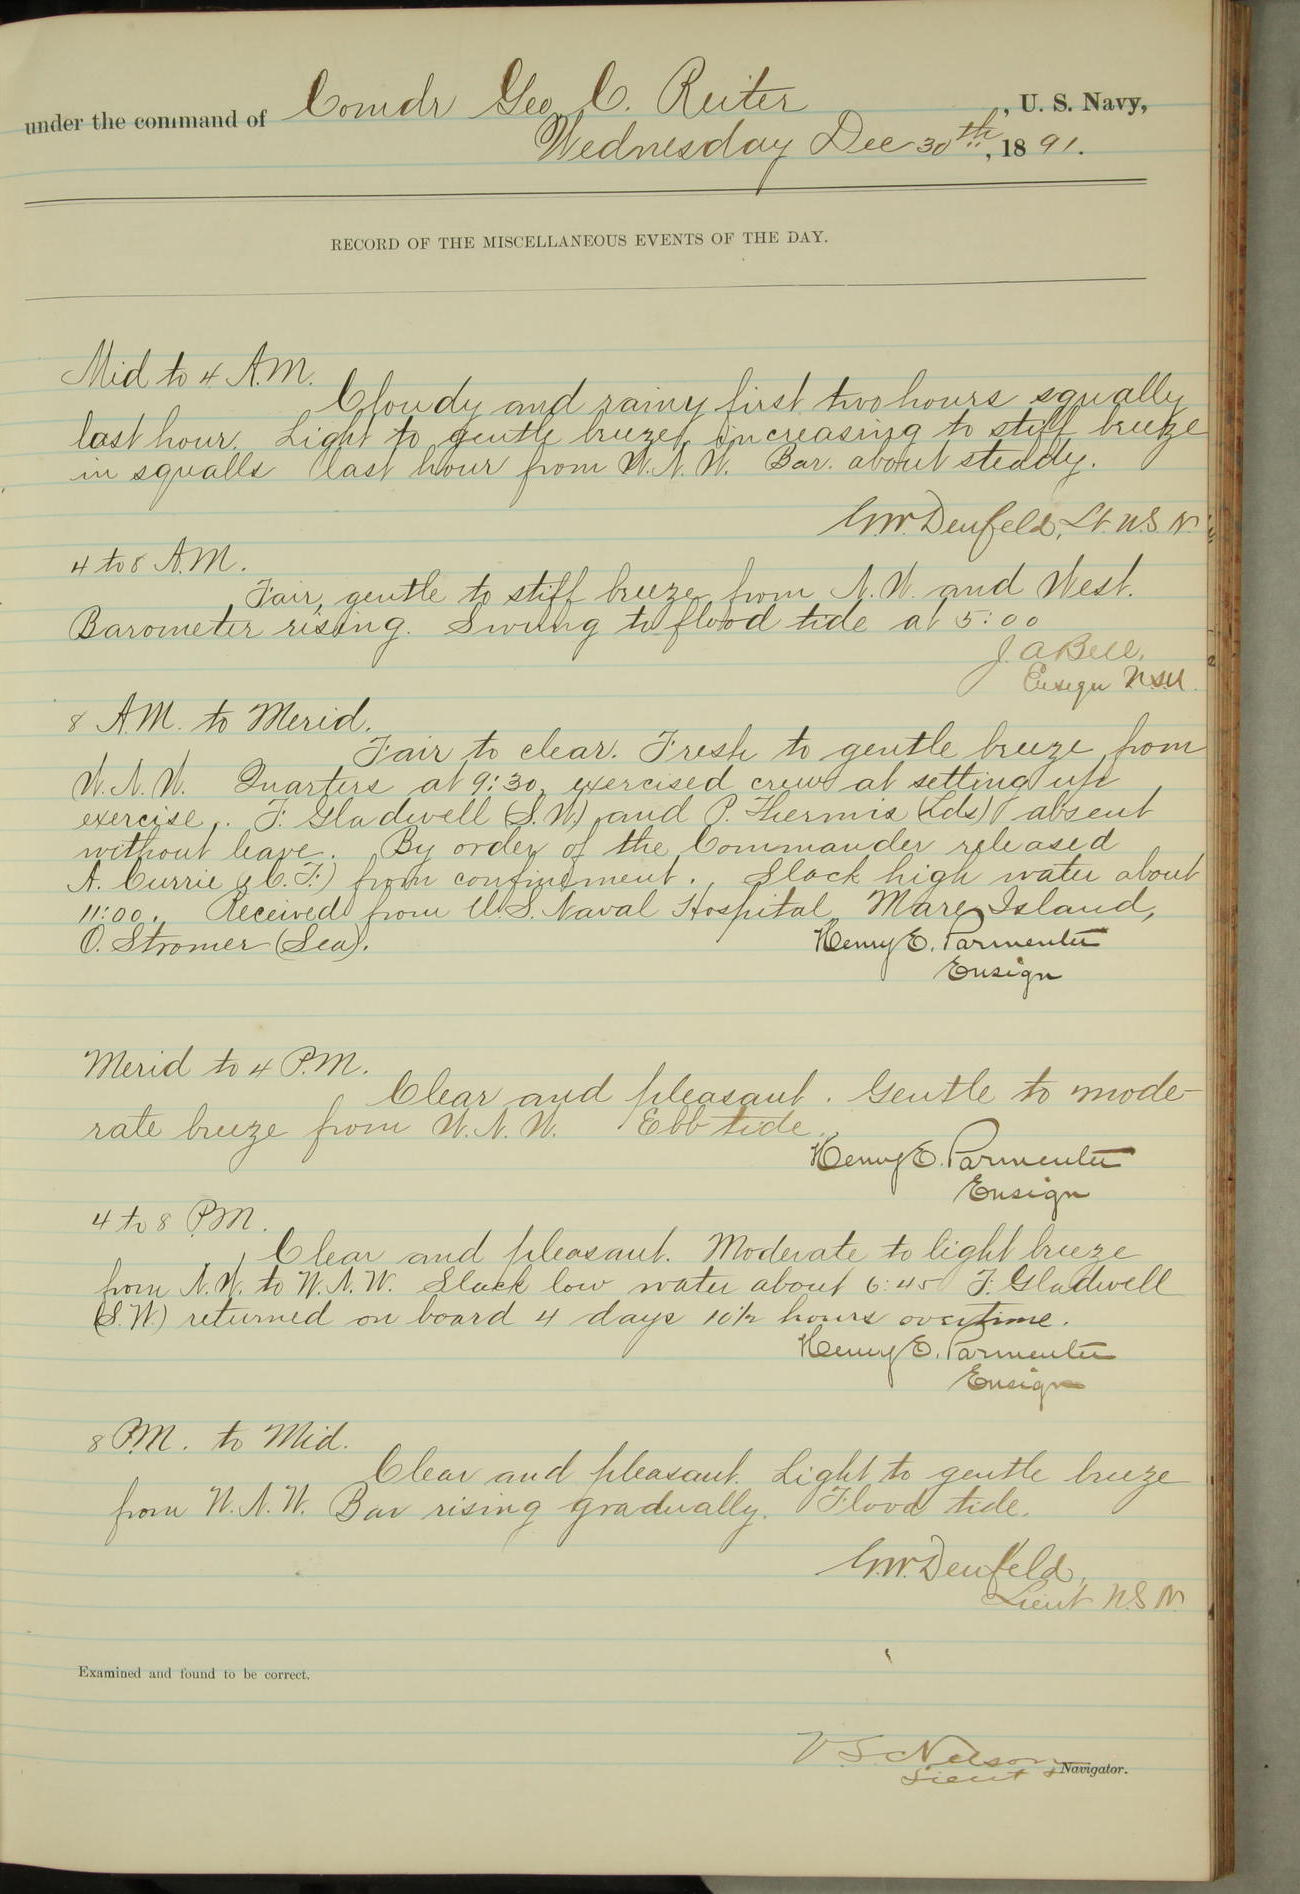 under the command of Comdr Geo C. Reiter, U. S. Navy,
Wednesday Dec 30th, 1891.
RECORD OF THE MISCELLANEOUS EVENTS OF THE DAY.
Mid to 4 A.M.
Cloudy and rainy first two hours squally
last hour. Light to gentle breeze, increasing to stiff breeze
in squalls last hour from W.N.W. Bar. about steady.
G.W. Denfeld, Lt. U.S.N.
4 to 8 A.M.
Fair, gentle to stiff breeze from N.W. and West.
Barometer rising. Swung to flood tide at 5:00
J. A Bell,
Ensign U.S.N.
8 A.M. to Merid.
Fair to clear. Fresh to gentle breeze from
W.N.W. Quarters at 9:30, exercised crew at setting up
exercise. F. Gladwell (S.W.) and P. Thermis (Lds) absent
without leave. By order of the Commander released
A. Currie (C.F.) from confinement. Slack high water about
11:00. Received from U.S. Naval Hospital, Mare Island,
O. Stromer (Sea).
Henry E. Parmenter
Ensign
Merid to 4 P.M.
Clear and pleasant. Gentle to mode-
rate breeze from W.N.W. Ebb tide.
Henry E. Parmenter
Ensign
4 to 8 P.M.
Clear and pleasant. Moderate to light breeze
from N.W. to W.N.W. Slack low water about 6:45 F. Gladwell
(S.W.) returned on board 4 days 10½ hours overtime.
Henry E. Parmenter
Ensign
8 P.M. to Mid.
Clear and pleasant. Light to gentle breeze
from W.N.W. Bar rising gradually. Flood tide.
G.W. Denfeld,
Lieut U.S.N.
Examined and found to be correct.
V S Nelson
Lieut & Navigator.